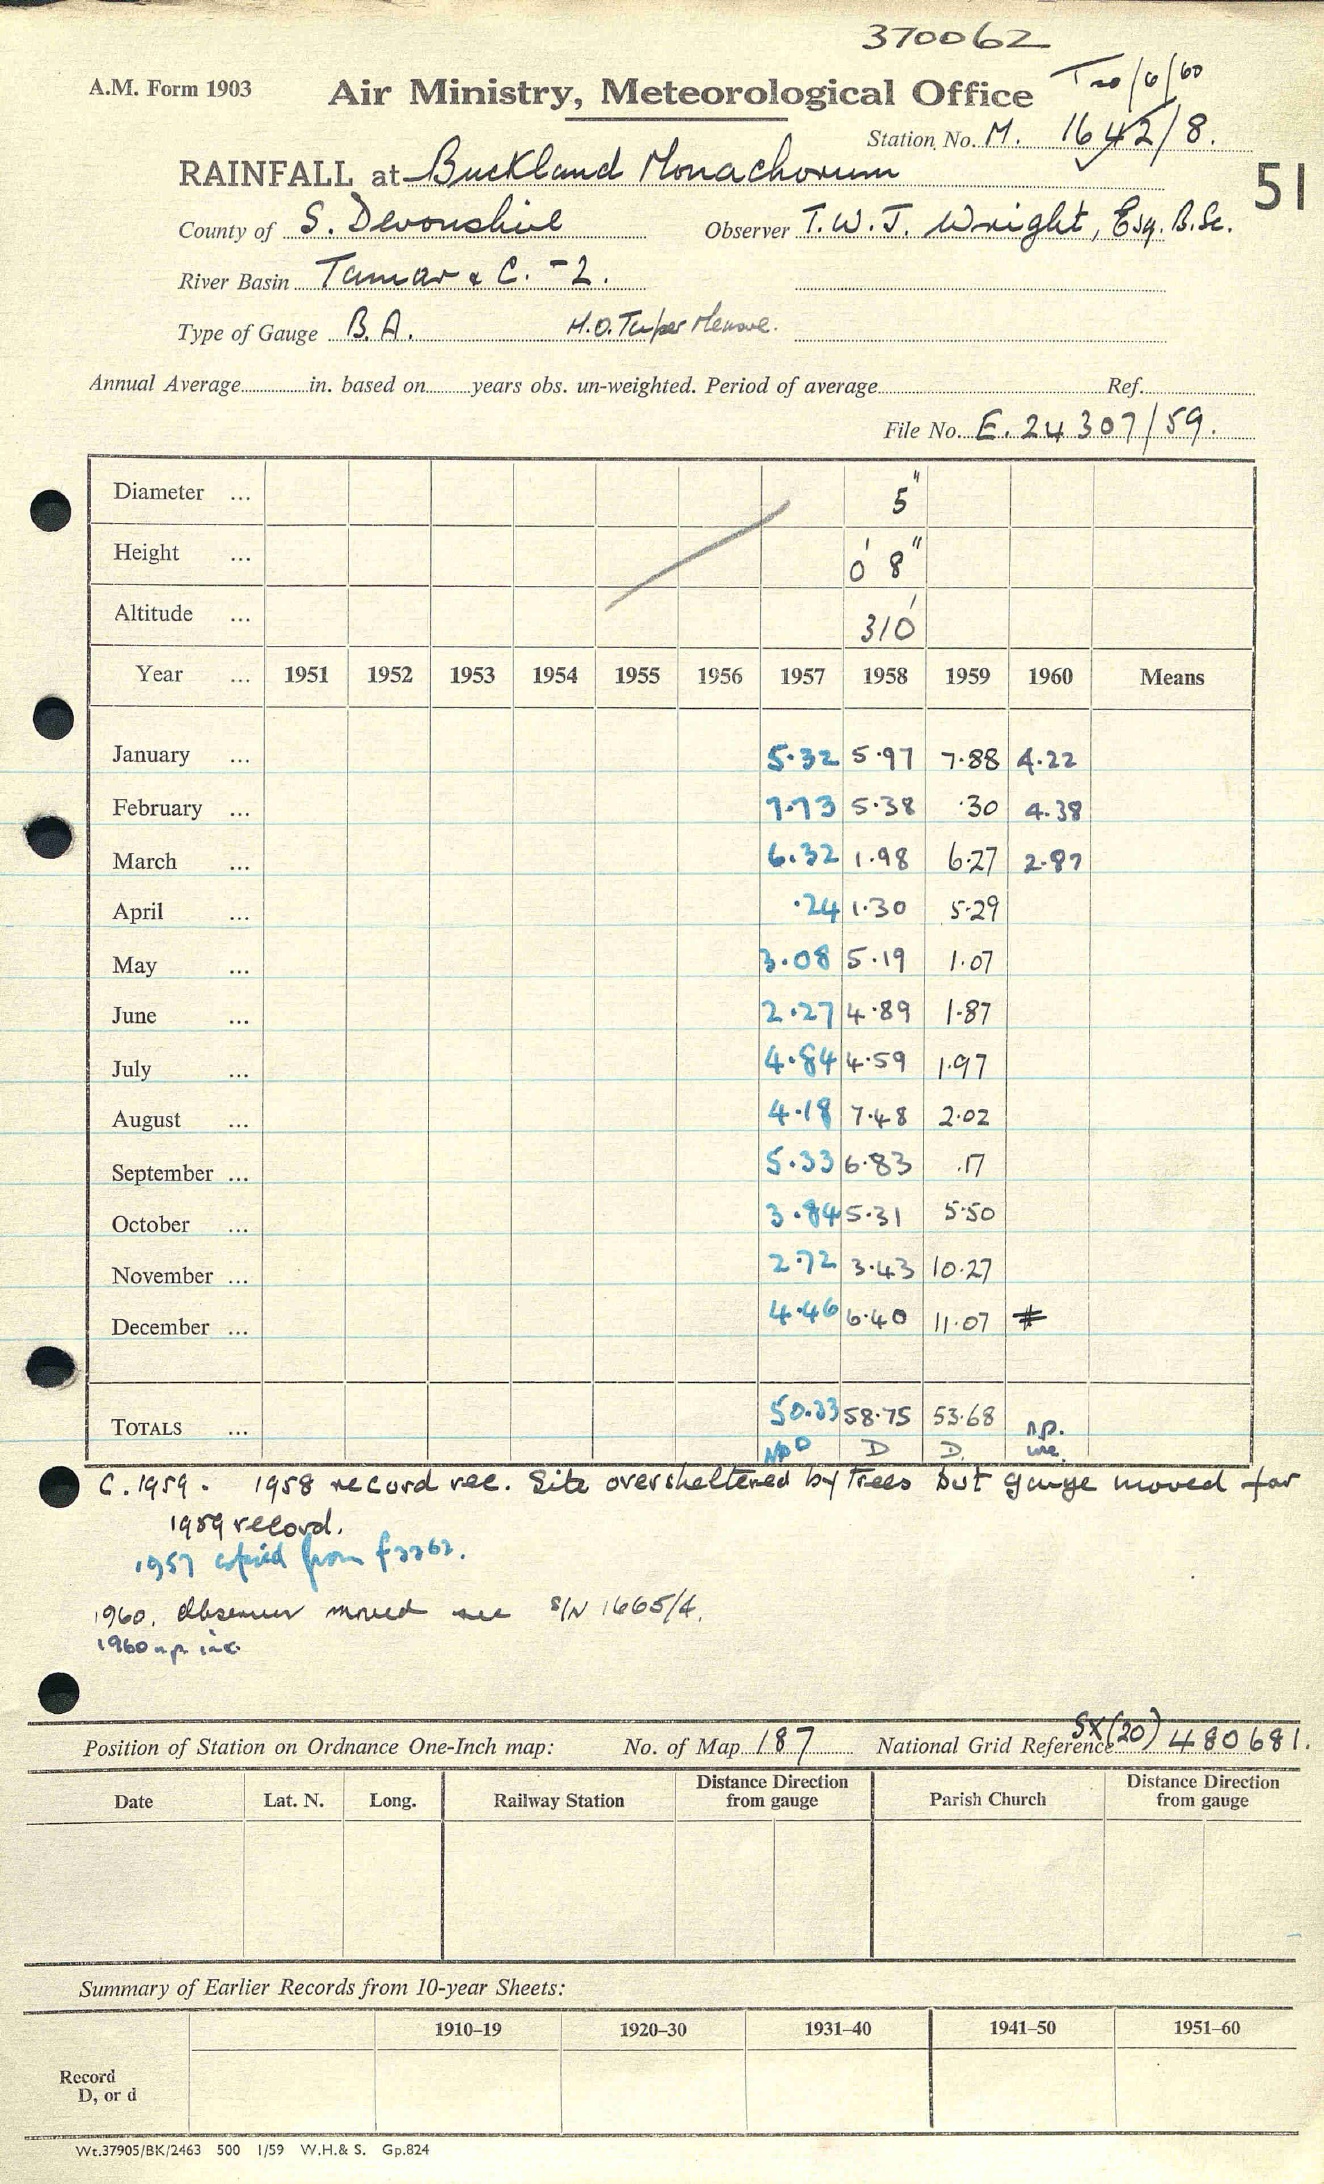 370062
A.M. Form 1903 Air Ministry, Meteorological Office
Station No. M. 1642/8.
RAINFALL at Buckland Monachorum 51
County of S. Devonshire Observer T. W. J. Wright, Esq. B.Sc.
River Basin Tamar & C. -2.
Type of Gauge B.A. M.O. Taper Measure.
Annual Average in. based on years obs. un-weighted. Period of average Ref.
File No. E. 24307/59.
Diameter ... 5"
Height ... 0' 8"
Altitude ... 310'
Year ... 1951 1952 1953 1954 1955 1956 1957 1958 1959 1960 Means
January ... 5.32 5.97 7.88 4.22
February ... 7.73 5.38 .30 4.38
March ... 6.32 1.98 6.27 2.87
April ... .24 1.30 5.29
May ... 3.08 5.19 1.07
June ... 2.27 4.89 1.87
July ... 4.84 4.59 1.97
August ... 4.18 7.48 2.02
September ... 5.33 6.83 .17
October ... 3.84 5.31 5.50
November ... 2.72 3.43 10.27
December ... 4.46 6.40 11.07 #
TOTALS ... 50.33 58.75 53.68 n.p.
NPD D D. inc.
C. 1959. 1958 record rec. Site oversheltered by trees but gauge moved for
1959 record.
1957 copied from f3362.
1960. Observer moved see S/N 1665/4.
1960 n.p. inc.
Position of Station on Ordnance One-Inch map: No. of Map 187 National Grid Reference SX(20) 480681.
Date Lat. N. Long. Railway Station Distance Direction from gauge Parish Church Distance Direction from gauge
Summary of Earlier Records from 10-year Sheets:
1910–19 1920–30 1931–40 1941–50 1951–60
Record
D, or d
Wt.37905/BK/2463 500 1/59 W.H.& S. Gp.824